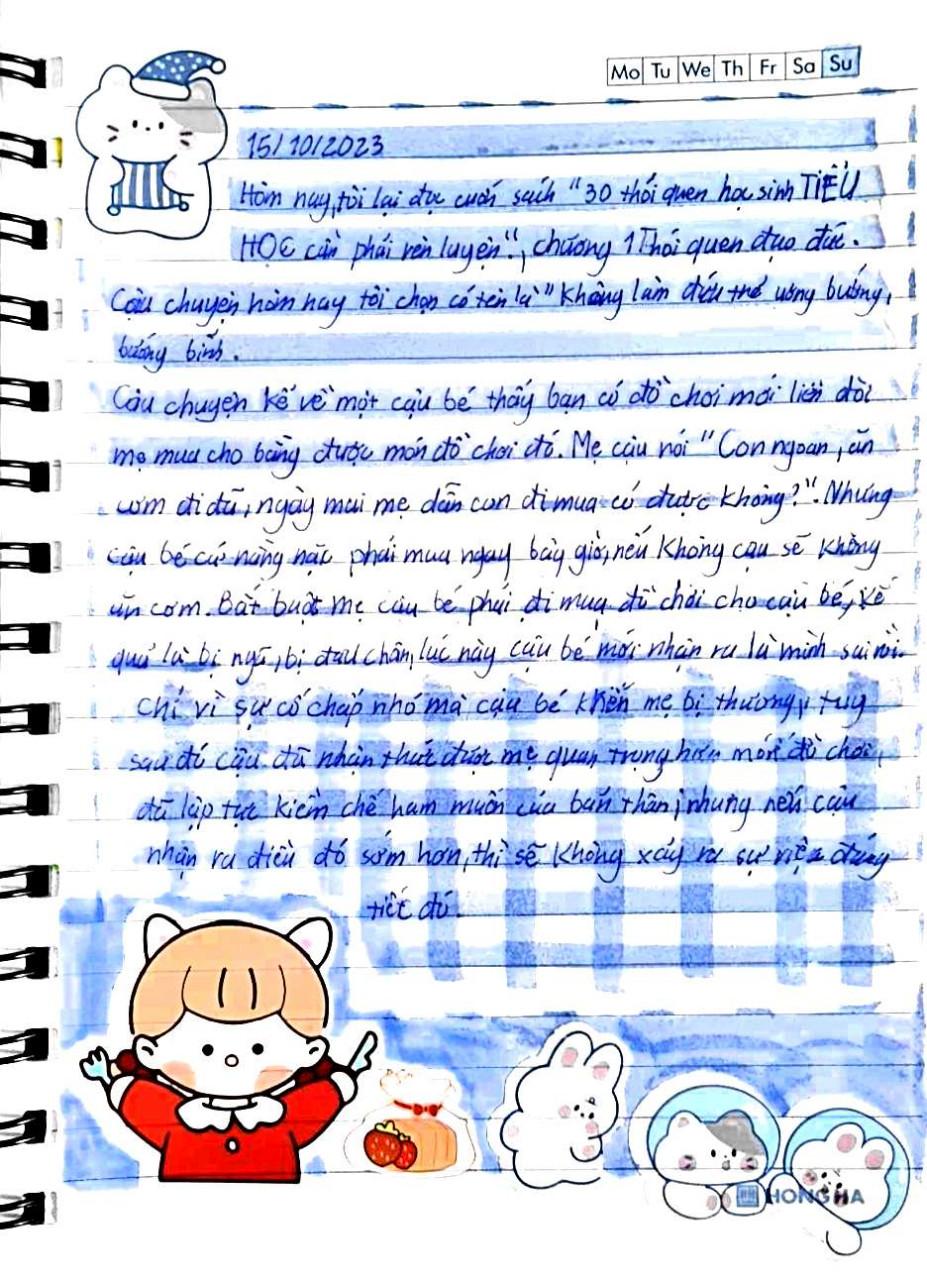 Mo Tu We Th Fr Sa Su
15/10/2023
Hôm nay, tôi lại đọc cuốn sách "30 thói quen học sinh TIỂU
HỌC cần phải rèn luyện", chương 1 Thói quen đạo đức.
Câu chuyện hôm nay tôi chọn có tên là "Không làm đứa trẻ ương bướng,
bướng bỉnh.
Câu chuyện kể về một cậu bé thấy bạn có đồ chơi mới liền đòi
mẹ mua cho bằng được món đồ chơi đó. Mẹ cậu nói "Con ngoan, ăn
cơm đi đã, ngày mai mẹ dẫn con đi mua có được không?". Nhưng
cậu bé cứ nằng nặc phải mua ngay bây giờ, nếu không cậu sẽ không
ăn cơm. Bắt buột mẹ cậu bé phải đi mua đồ chơi cho cậu bé, kế
quả là bị ngã, bị đau chân, lúc này cậu bé mới nhận ra là mình sai rồi.
Chỉ vì sự cố chấp nhỏ mà cậu bé khiến mẹ bị thương, tuy
sau đó cậu đã nhận thức được mẹ quan trọng hơn món đồ chơi,
đã lập tực kiềm chế ham muốn của bản thân, nhưng nếu cậu
nhận ra điều đó sớm hơn, thì sẽ không xảy ra sự việc đáng
tiếc đó.
HONG HA